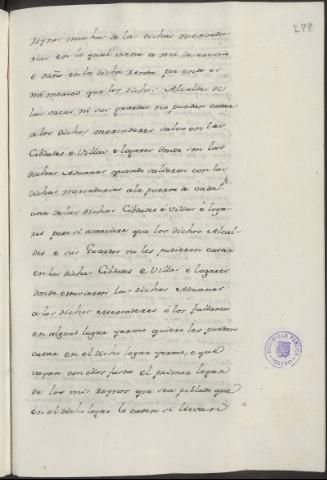 298
Reynos muchas de las dichas mercadu
rias en lo qual viene a mi deservicio
e daño en la dicha renta por ende es
mi merced que los dichos Alcaldes de
las sacas ni sus guardas no puedan catar
a los dichos mercaderes salvo en las
Cibdades e Villas e logares donde son las
dichas Aduanas quando salieren con las
dichas mercadurias a la puerta de cada
una de las dichas Cibdades e Villas e loga
res pero si acaesciere que los dichos Alcal
des e sus Guardas no les pudieron catar
en las dichas Cibdades e Villas e logares
donde estovieron las dichas Aduanas
a los dichos Mercaderes o los fallaren
en algund lugar yermo quiero les puedan
catar en el dicho logar yermo, e que
vayan con ellos fasta el primer logar
de los mis Reynos que sea poblado que
en el dicho logar lo caten si llevan
BIBLIOTECA PUBLICA
TOLEDO